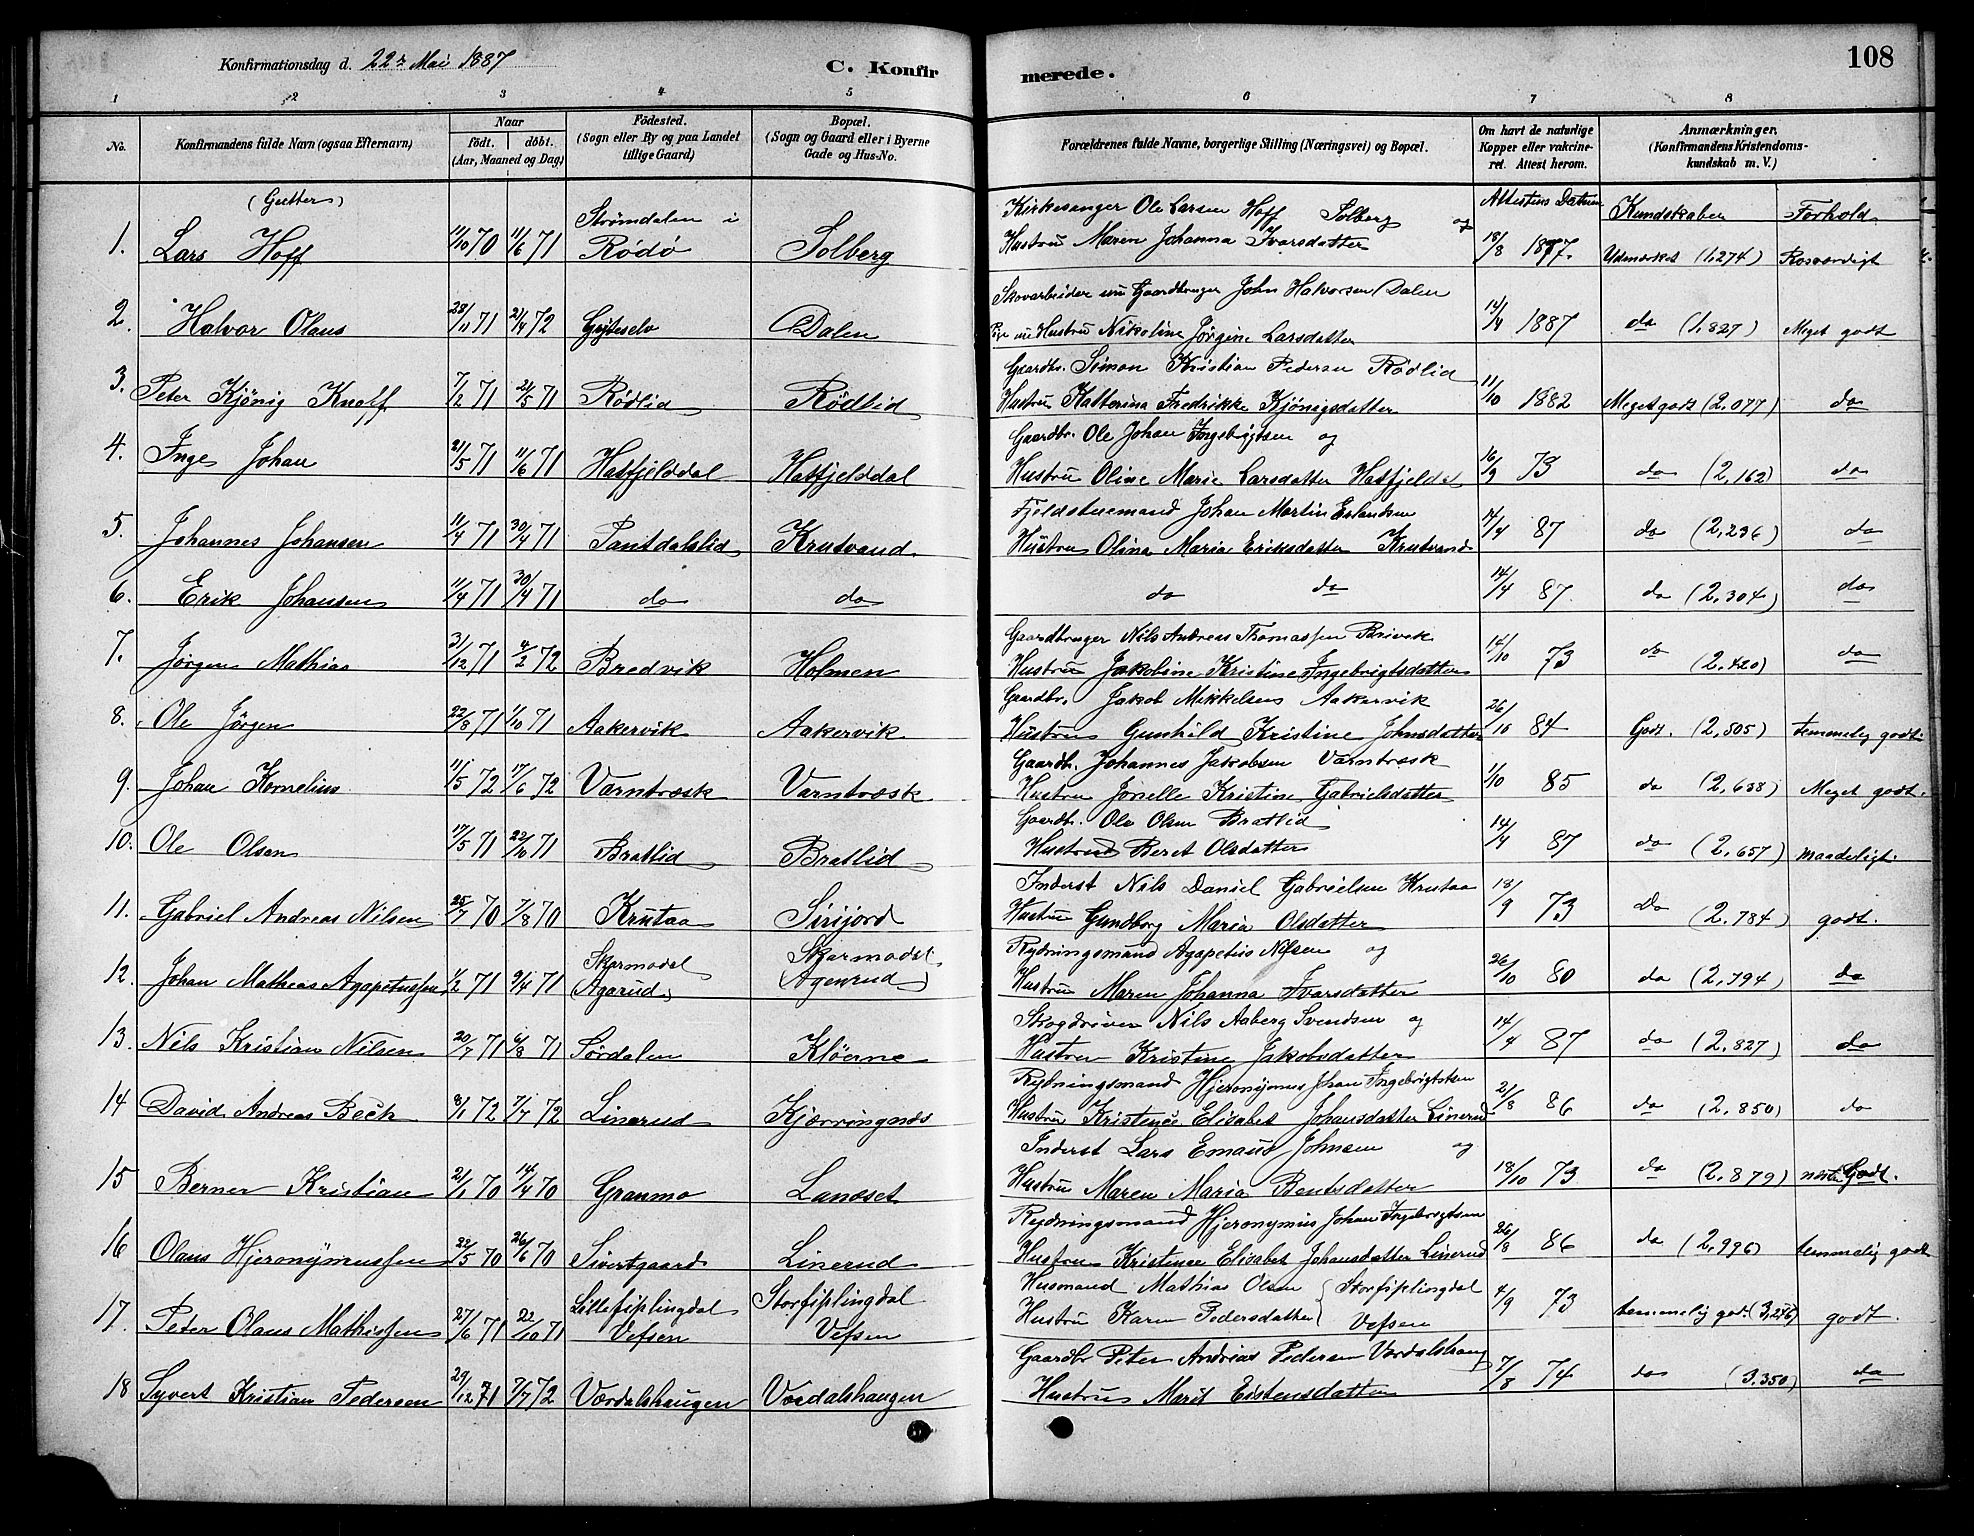 Konfirmationsdag d. 22de Mai 1887
C. Konfir
merede.
108
1 2 3 4 5 6 7 8
No.
Konfirmandens fulde Navn (ogsaa Efternavn)
Naar
födt. döbt.
(Aar, Maaned og Dag)
Födested.
(Sogn eller By og paa Landet
tillige Gaard)
Bopæl.
(Sogn og Gaard eller i Byerne
Gade og Hus-No.
Forældrenes fulde Navne, borgerlige Stilling (Næringsvei) og Bopæl.
Om havt de naturlige
Kopper eller vakcine-
ret. Attest herom.
Anmærkninger.
(Konfirmandens Kristendoms-
kundskab m. V.)
(Gutter)
Attestens Datum
Kundskaber Forhold
Strömdalen i Kirkesanger Ole Larsen Hoff Solberg og
1. Lars Hoff 11/10 70 11/6 71 Rödö Solberg Hustru Maren Johanna Ivarsdatter 18/8 1877. Udmærket (1,274) Rosværdigt
Skovarbeider Gaardbruger John Halvorsen Dalen
2. Halvor Olaus 28/11 71 21/4 72 Dalen Hustru Nikoline Jörgine Larsdatter 14/4 1887 do (1,827) Meget godt
Gaardbr. Simon Kristian Pedersen Rödlid
3. Peter Kjönig Knoff 7/2 71 21/5 71 Rödlid Rödlid Hustru Katterina Fredrikke Kjönigsdatter 11/10 1882 Meget godt (2,077) do
Gaardbr. Ole Johan Ingebrigtsen og
4. Inge Johan 21/5 71 11/6 71 Hatfjelddal Hatfjelddal Hustru Oline Marie Larsdatter Hatfjeldd 16/9 73 do (2,162) do
Fjeldstuemand Johan Martin Erlandsen
5. Johannes Johansen 11/4 71 30/4 71 Krutvand Hustru Olina Maria Eriksdatter 14/4 87 do (2,236) do
6. Erik Johansen 11/4 71 30/4 71 do do do do 14/4 87. do (2,304) do
Gaardbruger Nils Andreas Thomassen Brivik
7. Jörgen Mathias 31/12 71 4/2 72 Bredvik Holmen Hustru Jakobine Kristine Ingebrigtsdatter 14/10 73 do (2,420) do
Gaardbr. Jakob Mikkelsen Aakervik
8. Ole Jörgen 22/8 71 1/10 71 Aakervik Aakervik Hustru Gunhild Kristine Johnsdatter 26/10 84 Godt. (2,505) temmelig godt
Gaardb. Johannes Jakobsen Varntræsk
9. Johan Kornelius 11/5 72 17/6 72 Varntræsk Varntræsk Hustru Kristine Gabrielsdatter 1/10 85 do (2,638) Meget godt.
Gaardbr. Ole Olsen Bratlid
10. Ole Olsen 17/5 71 22/10 71 Bratlid Bratlid Hustru Beret Olsdatter 14/4 87 do (2,657) maadeligt.
Inderst Nils Daniel Gabrielsen Krutaa
11. Gabriel Andreas Nilsen 25/7 70 7/8 70 Krutaa Sirijord Hustru Gundborg Maria Olsdatter 18/9 73 Do (2,784) godt.
Skarmodal Skarmodal Rydningsmand Agapetus Nilsen og
12. Johan Mathias Agapetussen 1/2 71 9/4 71 (Agarud) (Agenrud) Hustru Maren Johanna Ivarsdatter 26/10 80 do (2,794) do
Skogdriver Nils Aaberg Svendsen og
13. Nils Kristian Nilsen 20/7 71 6/8 71 Sördalen Klöerne Hustru Kristine Jakobsdatter 14/4 87 do (2,827) do
Rydningsmand Hjeronymus Johan Ingebrigtsen
14 David Andreas Beck 8/1 72 7/7 72 Linerud Kjærringnæs Hustru Kristence Elisabet Johansdatter Linerud. 21/8 86 do (2,850) do
Inderst Lars Emaus Johnsen og
15 Berner Kristian 21/1 70 14/4 70 Granmo Landset Hustru Maren Maria Bentsdatter 18/10 73 do (2,879) Godt.
Rydningsmand Hjeronymus Johan Ingebrigtsen
16 Olaus Hjeronymussen 22/5 70 26/6 70 Sivertgaard Linerud Hustru Kristence Elisabet Johansdatter Linerud 26/8 86 do (2,996) temmelig godt
Lillefiplingdal Storfiplingdal Husmand Mathias Olsen Storfiplingdal
17. Peter Olaus Mathissen 27/6 71 22/10 71 Vefsen Vefsen Hustru Karen Pedersdatter Vefsen 4/9 73 temmelig god. (3,256) godt.
Gaardbr Peter Andreas Pedersen Vardalshaug
18 Syvert Kristian Pedersen 29/12 71 7/7 72 Værdalshaugen Værdalshaugen Hustru Marit Eistensdatter 7/8 74 do (3,350) do